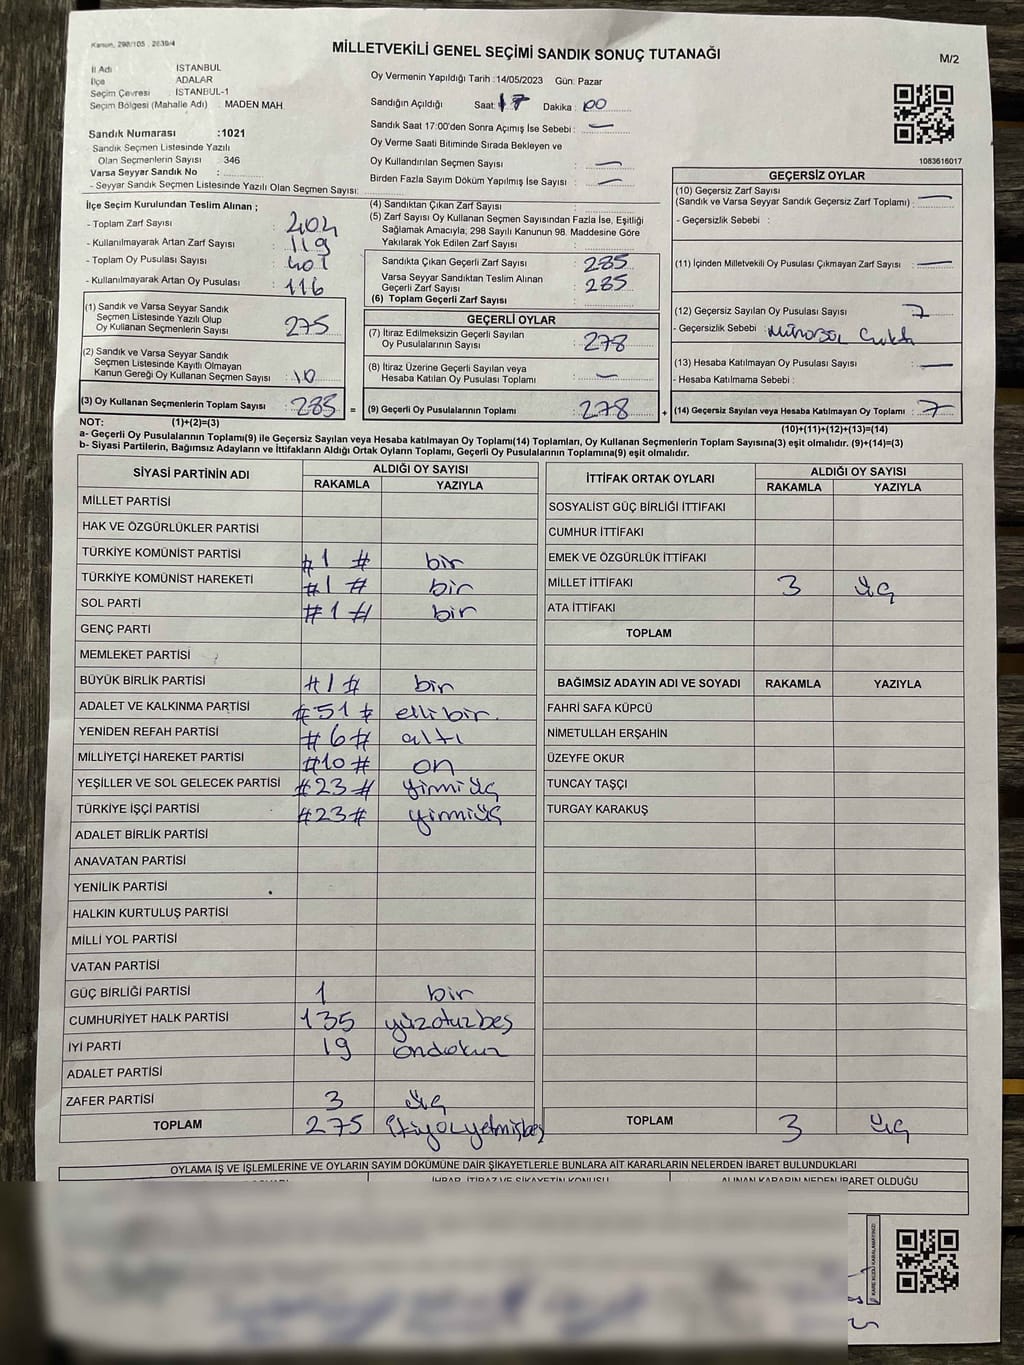 Kanun, 298/105 . 2839/4
MİLLETVEKİLİ GENEL SEÇİMİ SANDIK SONUÇ TUTANAĞI
M/2
İl Adı İSTANBUL
İlçe ADALAR
Seçim Çevresi : İSTANBUL-1
Seçim Bölgesi (Mahalle Adı) : MADEN MAH
Sandık Numarası :1021
Sandık Seçmen Listesinde Yazılı
Olan Seçmenlerin Sayısı : 346
Varsa Seyyar Sandık No :
- Seyyar Sandık Seçmen Listesinde Yazılı Olan Seçmen Sayısı:
Oy Vermenin Yapıldığı Tarih :14/05/2023 Gün: Pazar
Sandığın Açıldığı Saat: 17 Dakika : 00
Sandık Saat 17:00'den Sonra Açımış İse Sebebi : —
Oy Verme Saati Bitiminde Sırada Bekleyen ve
Oy Kullandırılan Seçmen Sayısı : —
Birden Fazla Sayım Döküm Yapılmış İse Sayısı : —
1083616017
İlçe Seçim Kurulundan Teslim Alınan ;
- Toplam Zarf Sayısı : 404
- Kullanılmayarak Artan Zarf Sayısı : 119
- Toplam Oy Pusulası Sayısı : 401
- Kullanılmayarak Artan Oy Pusulası : 116
(1) Sandık ve Varsa Seyyar Sandık
Seçmen Listesinde Yazılı Olup
Oy Kullanan Seçmenlerin Sayısı : 275
(2) Sandık ve Varsa Seyyar Sandık
Seçmen Listesinde Kayıtlı Olmayan
Kanun Gereği Oy Kullanan Seçmen Sayısı : 10
(3) Oy Kullanan Seçmenlerin Toplam Sayısı : 285 =
(4) Sandıktan Çıkan Zarf Sayısı :
(5) Zarf Sayısı Oy Kullanan Seçmen Sayısından Fazla İse, Eşitliği
Sağlamak Amacıyla; 298 Sayılı Kanunun 98. Maddesine Göre
Yakılarak Yok Edilen Zarf Sayısı :
Sandıkta Çıkan Geçerli Zarf Sayısı : 285
Varsa Seyyar Sandıktan Teslim Alınan
Geçerli Zarf Sayısı : 285
(6) Toplam Geçerli Zarf Sayısı :
GEÇERLİ OYLAR
(7) İtiraz Edilmeksizin Geçerli Sayılan
Oy Pusulalarının Sayısı : 278
(8) İtiraz Üzerine Geçerli Sayılan veya
Hesaba Katılan Oy Pusulası Toplamı : —
(9) Geçerli Oy Pusulalarının Toplamı : 278 +
GEÇERSİZ OYLAR
(10) Geçersiz Zarf Sayısı
(Sandık ve Varsa Seyyar Sandık Geçersiz Zarf Toplamı) : —
- Geçersizlik Sebebi :
(11) İçinden Milletvekili Oy Pusulası Çıkmayan Zarf Sayısı : —
(12) Geçersiz Sayılan Oy Pusulası Sayısı : 7
- Geçersizlik Sebebi :
(13) Hesaba Katılmayan Oy Pusulası Sayısı : —
- Hesaba Katılmama Sebebi :
(14) Geçersiz Sayılan veya Hesaba Katılmayan Oy Toplamı : 7
NOT: (1)+(2)=(3)
(10)+(11)+(12)+(13)=(14)
a- Geçerli Oy Pusulalarının Toplamı(9) ile Geçersiz Sayılan veya Hesaba katılmayan Oy Toplamı(14) Toplamları, Oy Kullanan Seçmenlerin Toplam Sayısına(3) eşit olmalıdır. (9)+(14)=(3)
b- Siyasi Partilerin, Bağımsız Adayların ve İttifakların Aldığı Ortak Oyların Toplamı, Geçerli Oy Pusulalarının Toplamına(9) eşit olmalıdır.
SİYASİ PARTİNİN ADI ALDIĞI OY SAYISI
RAKAMLA YAZIYLA
MİLLET PARTİSİ
HAK VE ÖZGÜRLÜKLER PARTİSİ
TÜRKİYE KOMÜNİST PARTİSİ #1# bir
TÜRKİYE KOMÜNİST HAREKETİ #1# bir
SOL PARTİ #1# bir
GENÇ PARTİ
MEMLEKET PARTİSİ
BÜYÜK BİRLİK PARTİSİ #1# bir
ADALET VE KALKINMA PARTİSİ #51# ellibir
YENİDEN REFAH PARTİSİ #6# altı
MİLLİYETÇİ HAREKET PARTİSİ #10# on
YEŞİLLER VE SOL GELECEK PARTİSİ #23# yirmiüç
TÜRKİYE İŞÇİ PARTİSİ #23# yirmiüç
ADALET BİRLİK PARTİSİ
ANAVATAN PARTİSİ
YENİLİK PARTİSİ
HALKIN KURTULUŞ PARTİSİ
MİLLİ YOL PARTİSİ
VATAN PARTİSİ
GÜÇ BİRLİĞİ PARTİSİ 1 bir
CUMHURİYET HALK PARTİSİ 135 yüzotuzbeş
İYİ PARTİ 19 ondokuz
ADALET PARTİSİ
ZAFER PARTİSİ 3 üç
TOPLAM 275 ikiyüzyetmişbeş
İTTİFAK ORTAK OYLARI ALDIĞI OY SAYISI
RAKAMLA YAZIYLA
SOSYALİST GÜÇ BİRLİĞİ İTTİFAKI
CUMHUR İTTİFAKI
EMEK VE ÖZGÜRLÜK İTTİFAKI
MİLLET İTTİFAKI 3 üç
ATA İTTİFAKI
TOPLAM
BAĞIMSIZ ADAYIN ADI VE SOYADI RAKAMLA YAZIYLA
FAHRİ SAFA KÜPCÜ
NİMETULLAH ERŞAHİN
ÜZEYFE OKUR
TUNCAY TAŞÇI
TURGAY KARAKUŞ
TOPLAM 3 üç
OYLAMA İŞ VE İŞLEMLERİNE VE OYLARIN SAYIM DÖKÜMÜNE DAİR ŞİKAYETLERLE BUNLARA AİT KARARLARIN NELERDEN İBARET BULUNDUKLARI
İHBAR, İTİRAZ VE ŞİKAYETİN KONUSU ALINAN KARARIN NEDEN İBARET OLDUĞU